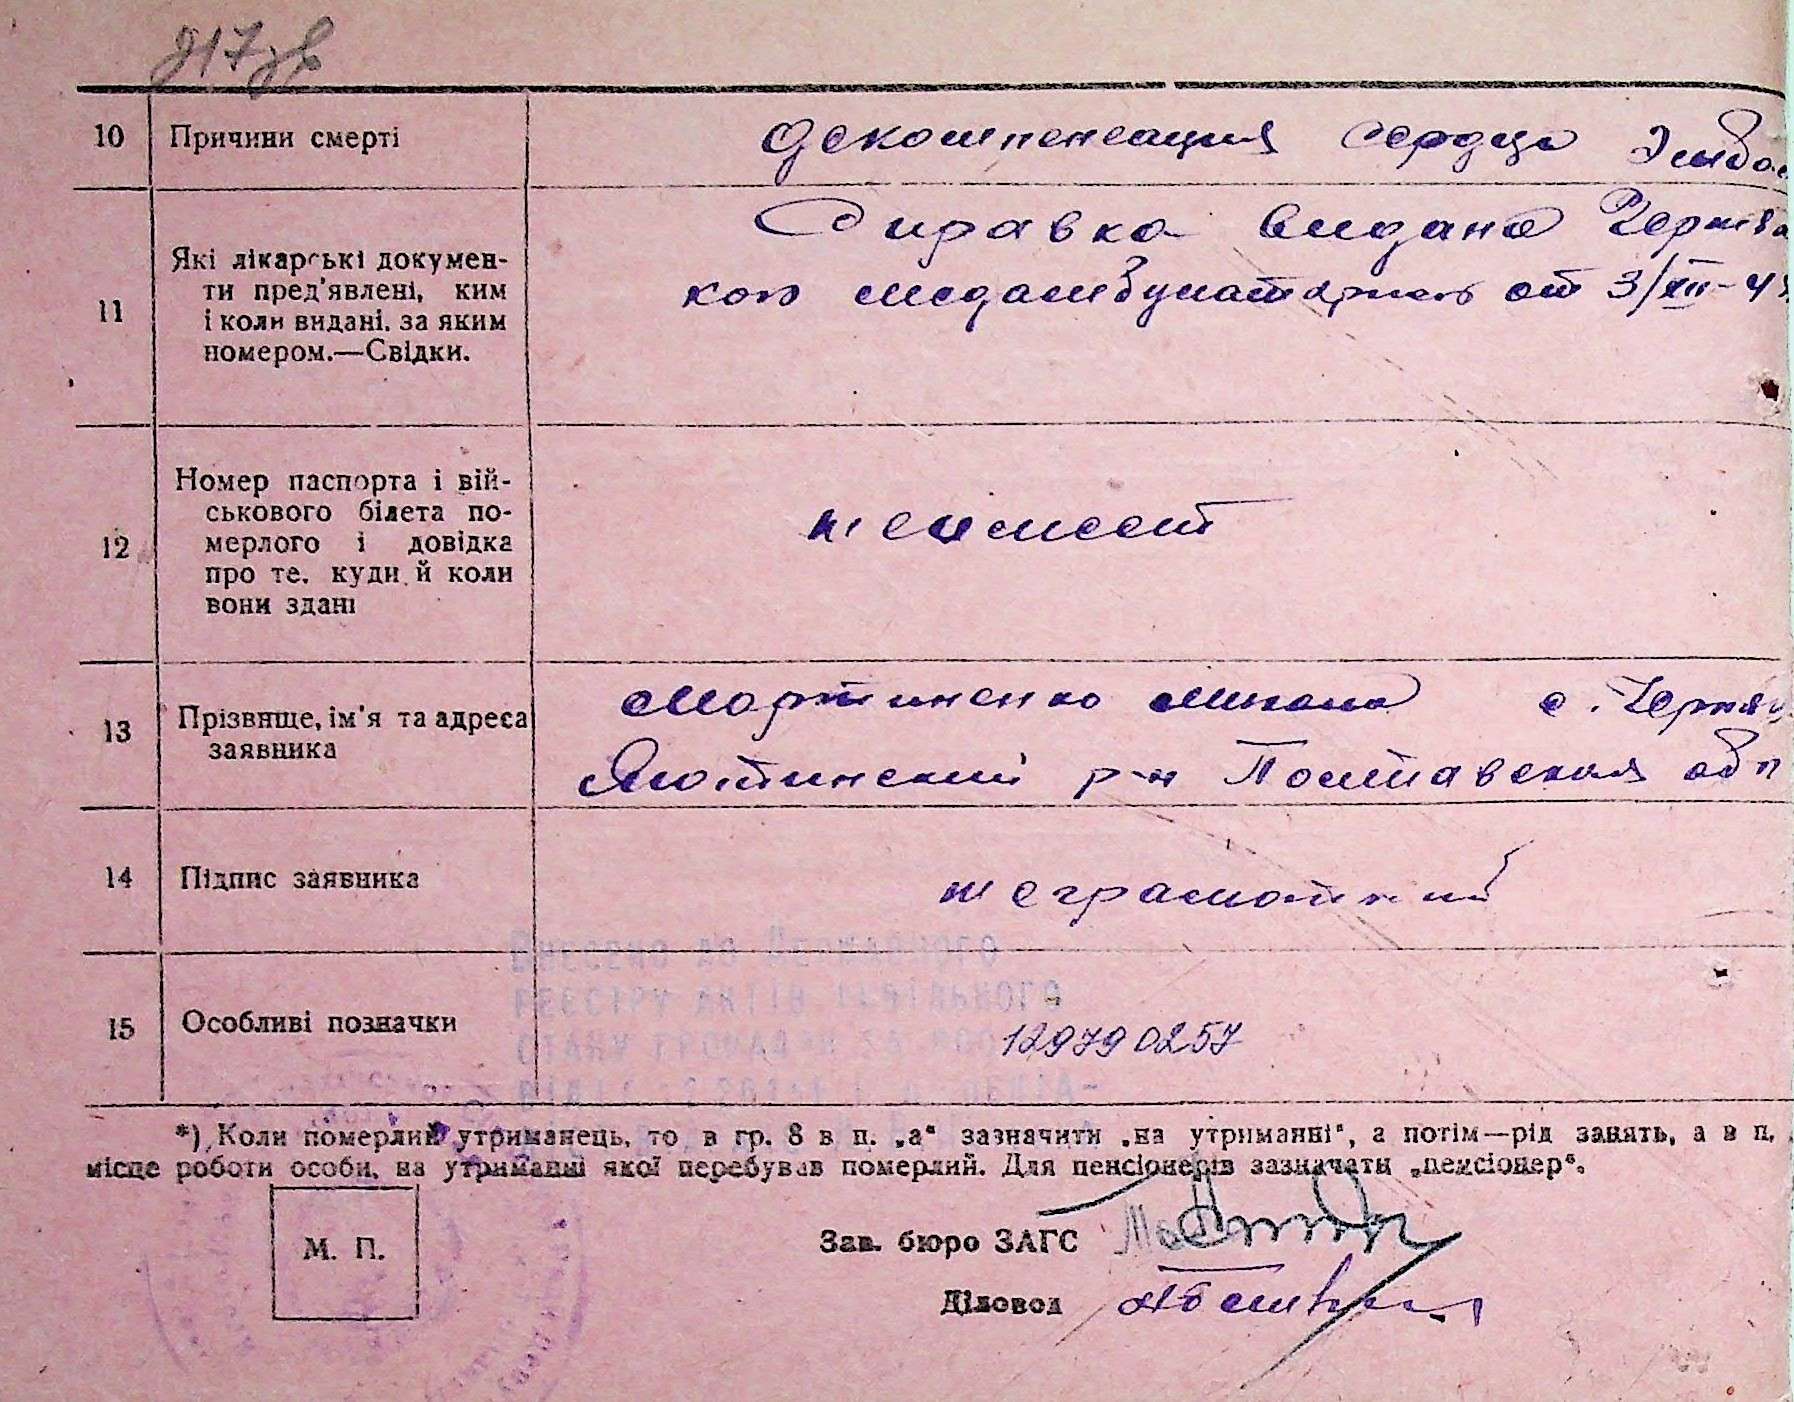 10 Причини смерті декомпенсация сердца Эмбол
11 Які лікарські докумен-
ти пред'явлені, ким
і коли видані, за яким
номером.—Свідки.
Справка видана Черняв
кою медамбулаторією от 3/XII-4
12 Номер паспорта і вій-
ськового білета по-
мерлого і довідка
про те, куди й коли
вони здані
неимеет
13 Прізвище, ім'я та адреса
заявника
Мартиненко с. Черня
Яготинский р-н Полтавская обл
14 Підпис заявника неграмотний
Внесено до Державного
РЕЄСТРУ АКТІВ ЦИВІЛЬНОГО
СТАНУ ГРОМАДЯН ЗА
15 Особливі позначки 12979 0257
*) Коли померлий утриманець, то в гр. 8 в п. „а“ зазначити „на утриманні“, а потім—рід занять, а в п.
місце роботи особи, на утриманні якої перебував померлий. Для пенсіонерів зазначати „пенсіонер“.
М. П.
Зав. бюро ЗАГС
Діловод